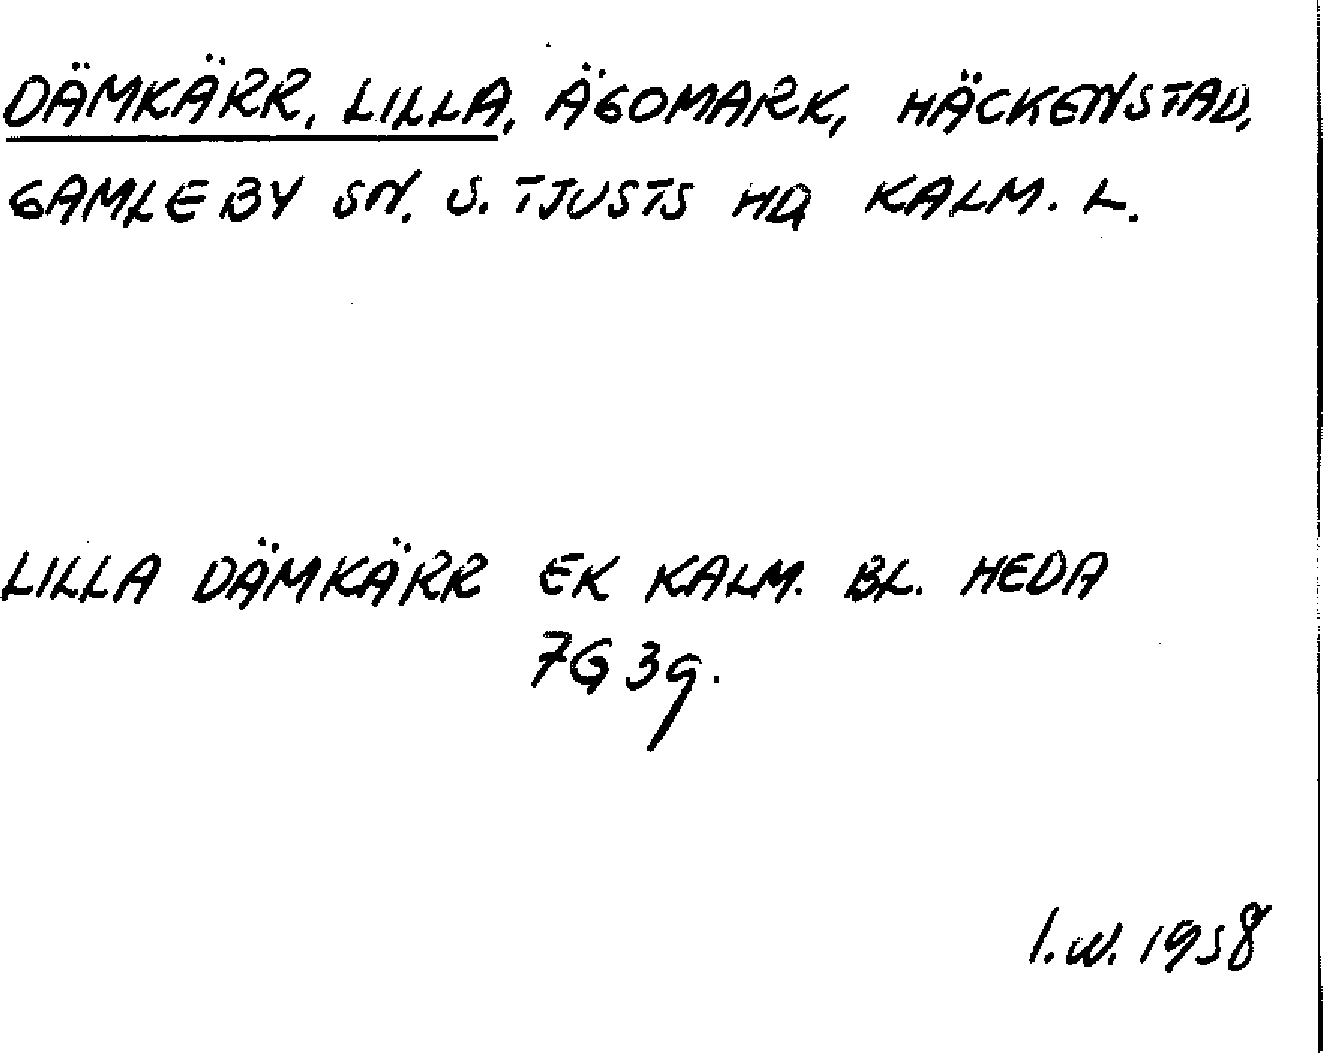 DÄMKÄRR, LILLA, ÄGOMARK, HÄCKENSTAD,
GAMLEBY SN. S. TJUSTS HD KALM. L.
LILLA DÄMKÄRR EK KALM. BL. HEDA
7G 3g.
I.W. 1958